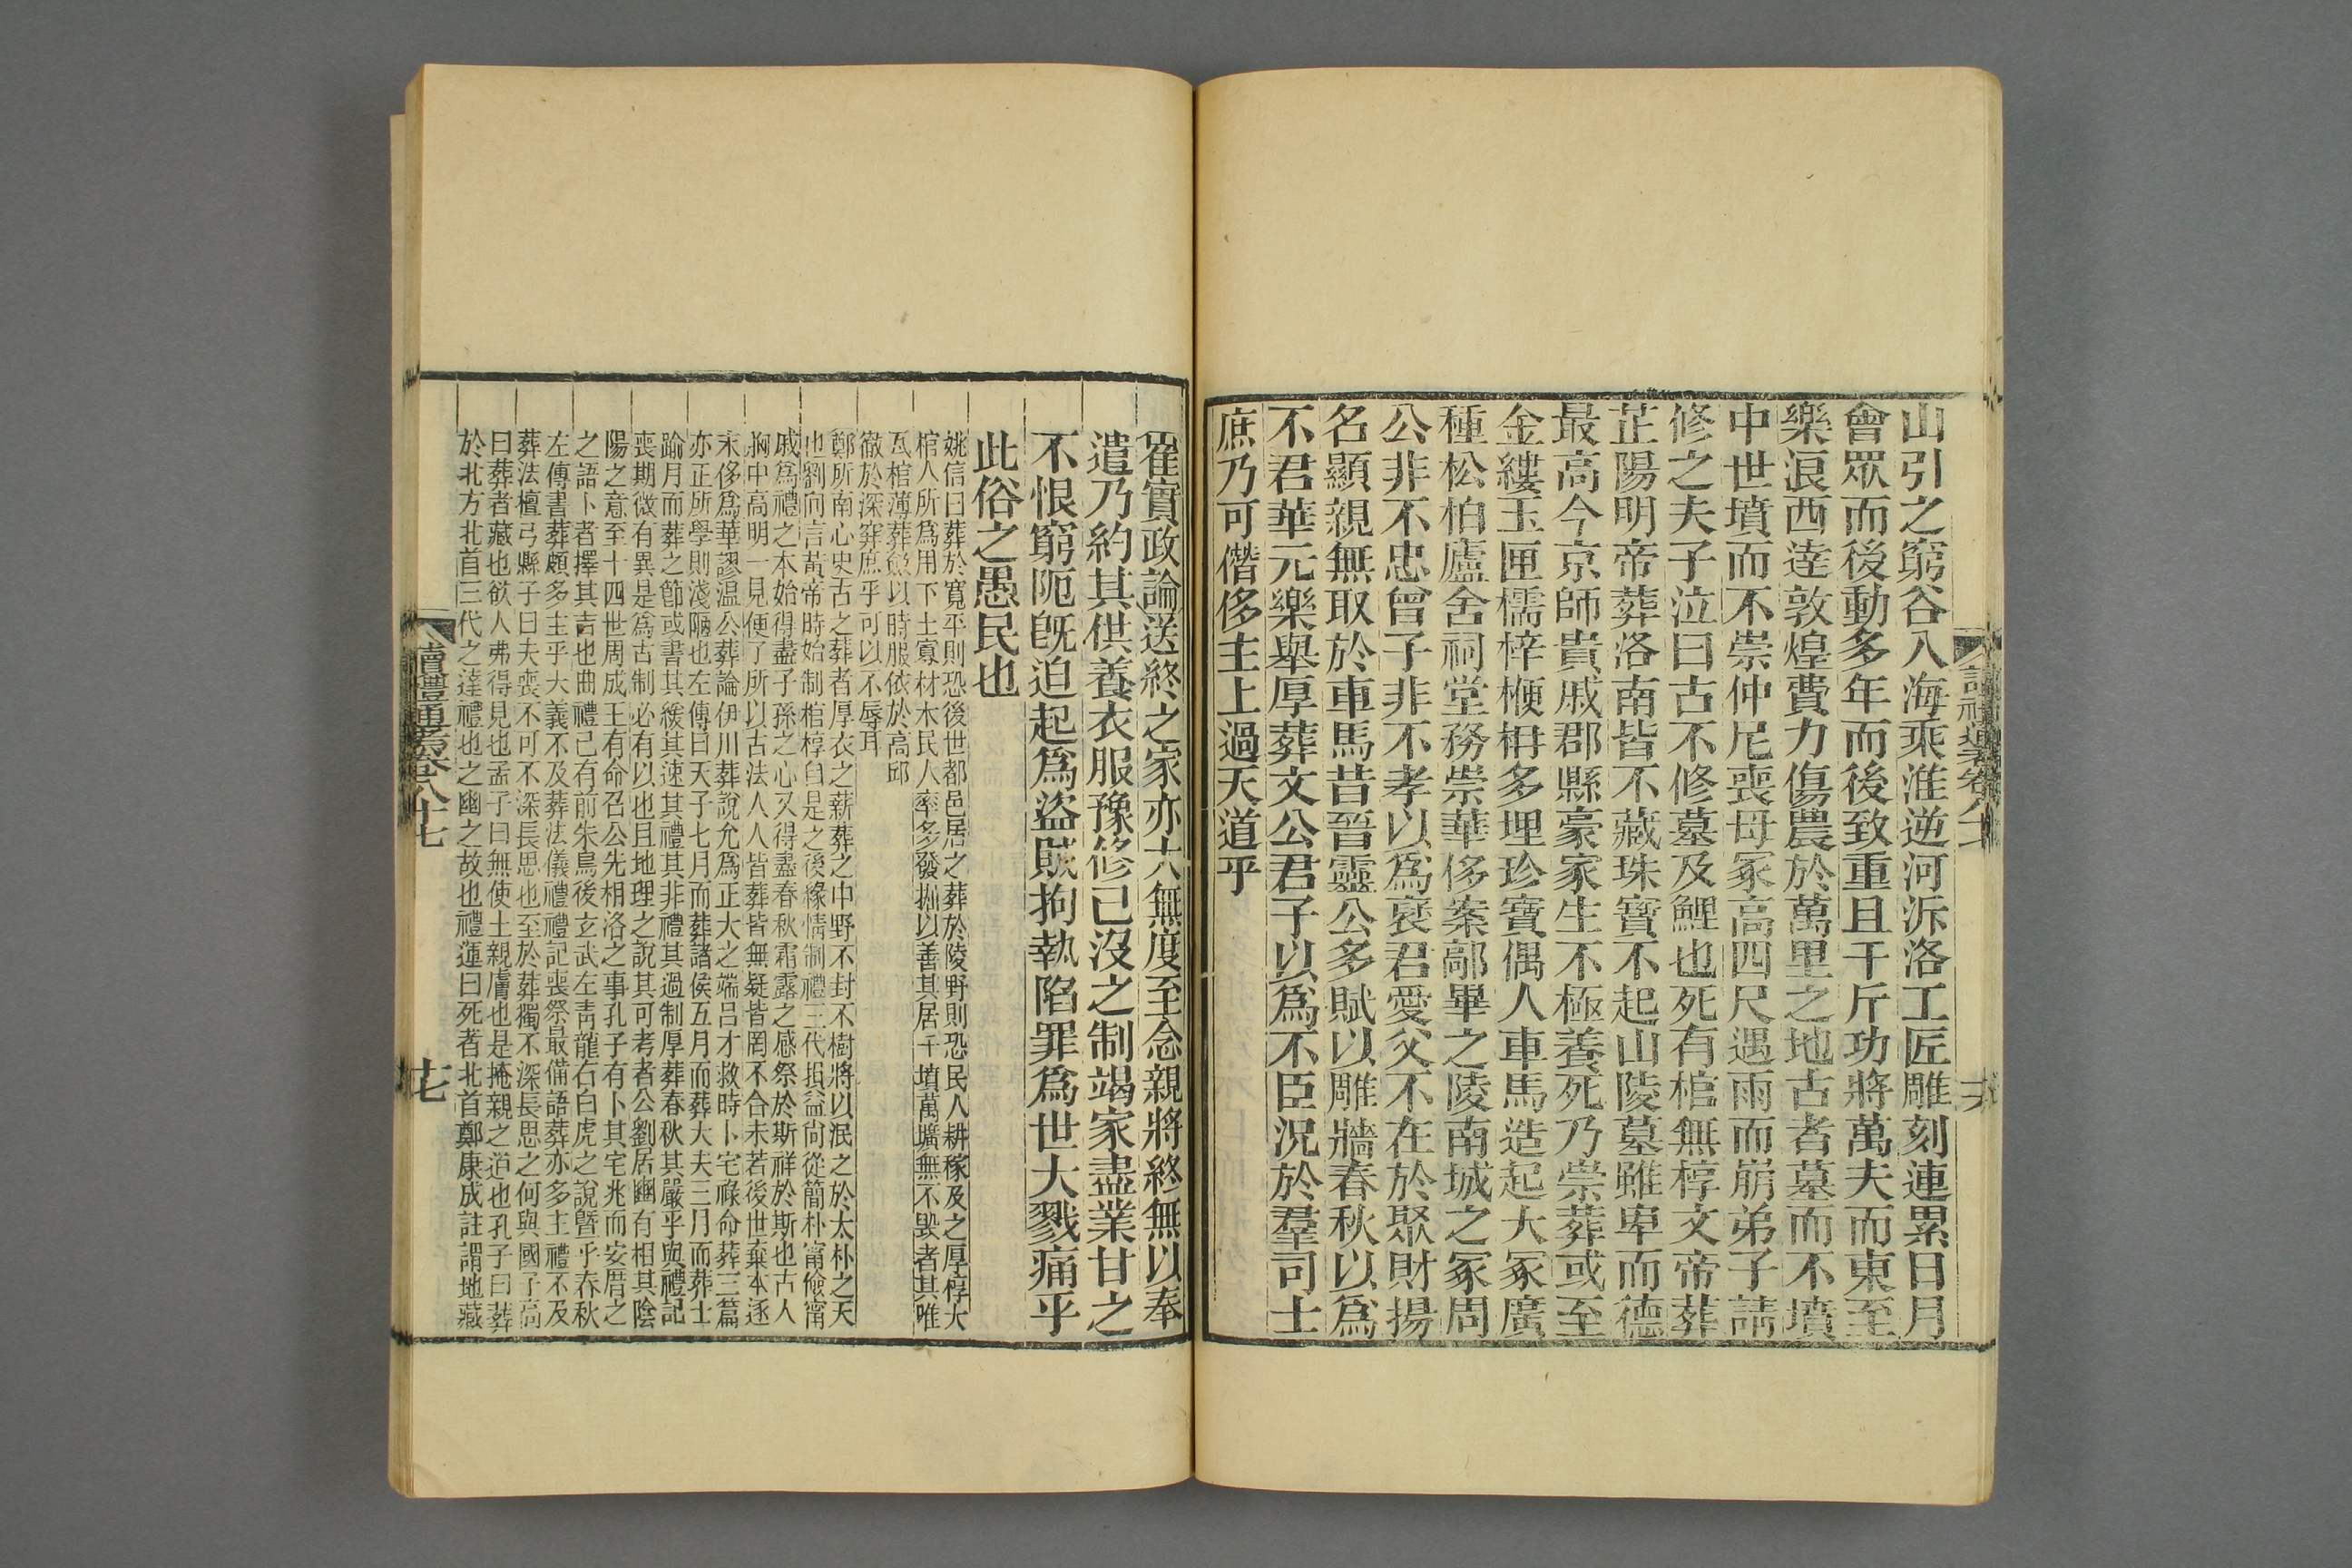 山引之窮谷入海乘淮逆河泝洛工匠雕刻連累日月
會眾而後動多年而後致重且千斤功將萬夫而東至
樂浪西逹敦煌費力傷農於萬里之地古者墓而不墳
中世墳而不崇仲尼喪母冢高四尺遇雨而崩弟子請
修之夫子泣曰古不修墓及鯉也死有棺無椁文帝葬
芷陽明帝葬洛南皆不藏珠寶不起山陵墓雖卑而德
最高今京師貴戚郡縣豪家生不極養死乃崇葬或至
金縷玉匣檽梓楩枏多埋珍寶偶人車馬造起大冢廣
種松柏廬舍祠堂務崇華侈案鄗畢之陵南城之冢周
公非不忠曾子非不孝以爲襃君愛父不在於聚財揚
名顯親無取於車馬昔晉靈公多賦以雕牆春秋以爲
不君華元樂舉厚葬文公君子以爲不臣況於羣司士
庶乃可僭侈主上過天道乎
讀禮通考卷八十七
十六
崔寔政論送終之家亦大無度至念親將終無以奉
遣乃約其供養衣服豫修已沒之制竭家盡業甘之
不恨窮阨旣迫起爲盜賊拘執陷罪爲世大戮痛乎
此俗之愚民也
姚信曰葬於寬平則恐後世都邑居之葬於陵野則恐民人耕稼及之厚椁大
棺人所爲用下土寡材木民人率多發掘以善其居千墳萬壙無不毀者其唯
瓦棺薄葬斂以時服依於高邱
徹於深穽庶乎可以不辱耳
鄭所南心史古之葬者厚衣之薪葬之中野不封不樹將以泯之於太朴之天
也劉向言黃帝時始制棺椁自是之後緣情制禮三代損益尙從簡朴甯儉甯
戚爲禮之本始得盡子孫之心又得盡春秋霜露之感祭於斯祥於斯也古人
胸中高明一見便了所以古法人人皆葬皆無疑皆罔不合未若後世棄本逐
末侈爲華謬温公葬論伊川葬說允爲正大之端呂才救時卜宅祿命葬三篇
亦正所學則淺陋也左傳曰天子七月而葬諸侯五月而葬大夫三月而葬士
踰月而葬之節或書其緩其速其禮其非禮其過制厚葬春秋其嚴乎與禮記
喪期微有異是爲古制必有以也且地理之說其可考者公劉居豳有相其陰
陽之意至十四世周成王有命召公先相洛之事孔子有卜其宅兆而安厝之
之語卜者擇其吉也曲禮己有前朱鳥後玄武左靑龍右白虎之說曁乎春秋
左傳書葬頗多主乎大義不及葬法儀禮禮記喪祭最備語葬亦多主禮不及
葬法檀弓縣子曰夫喪不可不深長思也至於葬獨不深長思之何與國子高
曰葬者藏也欲人弗得見也孟子曰無使土親膚也是掩親之道也孔子曰葬
於北方北首三代之達禮也之幽之故也禮運曰死者北首鄭康成註謂地藏
讀禮通考卷八十七
十七